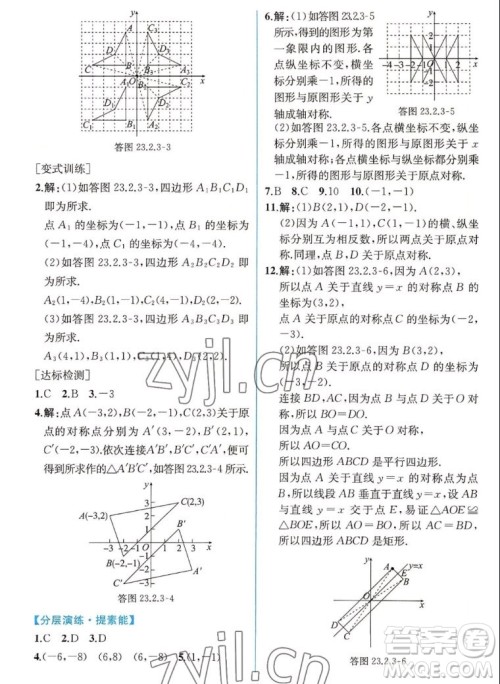 答图 23.2.3-3
[变式训练]
2.解:(1)如答图 23.2.3-3,四边形 A₁B₁C₁D₁
即为所求.
点 A₁ 的坐标为(-1,-1),点 B₁ 的坐标
为(-4,-4),点 C₁ 的坐标为(-4,-4).
(2)如答图 23.2.3-3,四边形 A₂B₂C₂D₂ 即
为所求.
A₂(1,-4),B₂(1,-1),C₂(4,-1),
D₂(2,-2).
(3)如答图 23.2.3-3,四边形 A₃B₃C₃D₃ 即
为所求.
A₃(4,1),B₃(1,1),
[达标检测]
1.C 2.B 3.-3
4.解:点 A(-3,2),B(-2,-1),C(2,3)关于原
点的对称点分别为 A′(3,-2),B′(2,1),
C′(-2,-3).依次连接A′B′,B′C′,A′C′,便可
得到所求作的△A′B′C′,如答图 23.2.3-4 所示.
A(-3,2)
C(2,3)
B(-2,-1)
答图 23.2.3-4
【分层演练·提素能】
1.C 2.D 3.D
4.(-6,-8) (6,8) (6,-8) 5.(1,-1)
6.解:(1)如答图 23.2.3-5
所示,得到的图形为第
一象限内的图形.各点
纵坐标不变,横坐标分别
乘-1,所得的
图形与原图形关于 y
轴成轴对称.
答图 23.2.3-5
(2)如答图 23.2.3-5,各点横坐标不变,纵坐
标分别乘-1,与原图形关于x轴对称;横、纵
坐标均乘-1,所得图形与原图形关于原点对称.
7.B 8.C 9.10 10.(-1,-1)
11.解:(1)D(2,1)
(2)因为 A(-1,1),C(1,-1)的横、纵坐
标分别互为相反数,所以两点关于原点对
称.同理,点 B,D 关于原点对称.
12.解:(1)如答图 23.2.3-6,因为 A(2,3),
所以点 A 关于直线 y=x 的对称点 B 的
坐标为(3,2),
点 A 关于原点的对称点 C 的坐标为(-2,-3).
(2)如答图 23.2.3-6,因为 B(3,2),
所以点 B 关于原点的对称点 D 的坐标为
(-3,-2).
连接 BD,AC,因为 BD 与 AC 交于点 O,
所以 BO=DO,AO=CO.
所以四边形 ABCD 是平行四边形.
因为点 A 关于直线 y=x 的对称点为点
B,所以线段 AB 垂直于直线 y=x,设 AB
与直线 y=x 交于点 E,易证△AOE≌
△BOE,所以 AO=BO,所以 AC=BD.
所以四边形 ABCD 是矩形.
答图 23.2.3-6
zyjl.cn
zyjl.cn
作业精灵